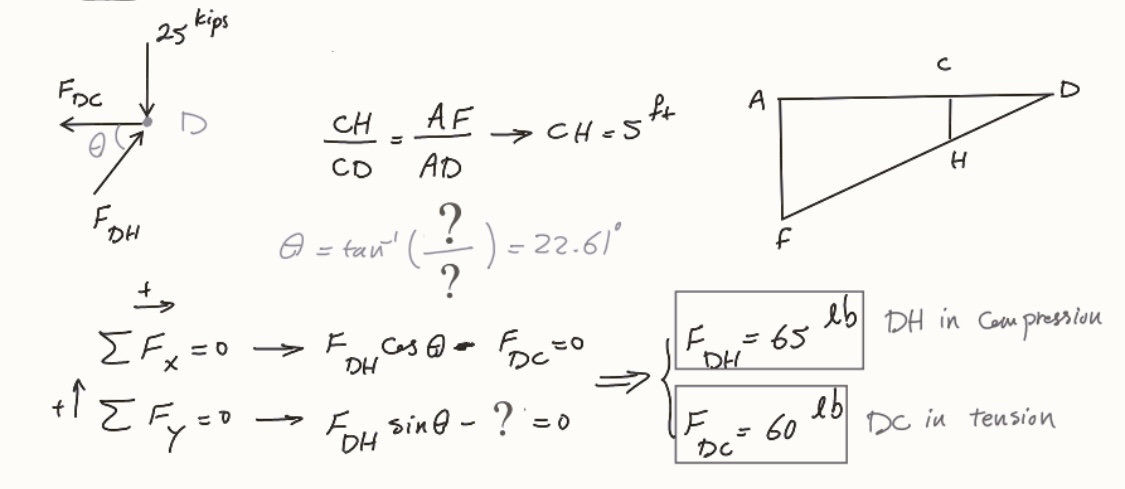 25 kips
F_DC
D
θ
F_DH
CH/CD = AF/AD → CH = 5 ft
A
C
D
H
F
θ = tan⁻¹(?/?) = 22.61°
+→
ΣF_x = 0 → F_DH Cos θ - F_DC = 0
+↑ ΣF_y = 0 → F_DH sin θ - ? = 0
⇒ { F_DH = 65 lb DH in Compression
F_DC = 60 lb DC in tension